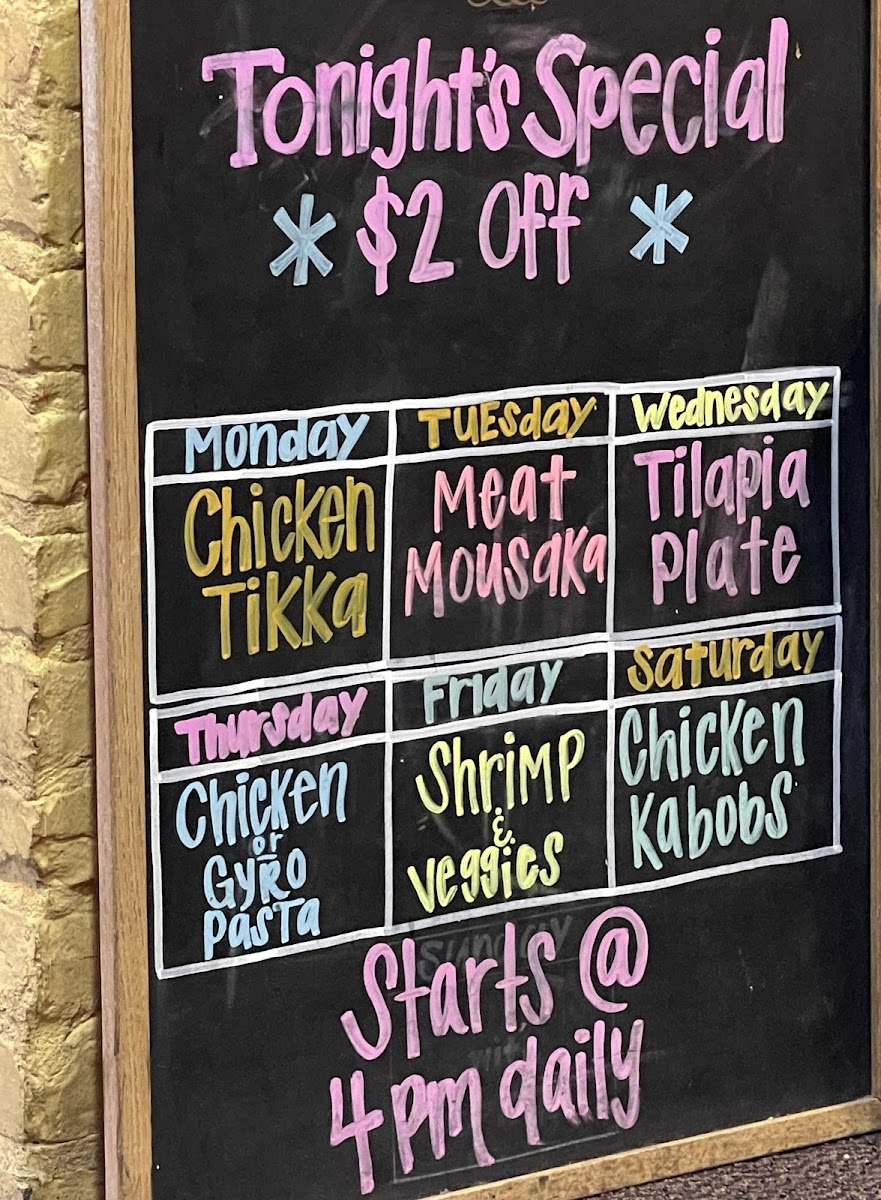 Tonight's Special
* $2 Off *
Monday Tuesday Wednesday
Chicken
Tikka
Meat
Mousaka
Tilapia
Plate
Thursday Friday Saturday
Chicken
or
Gyro
Pasta
Shrimp
&
Veggies
Chicken
Kabobs
Sunday
Starts @
4 pm daily